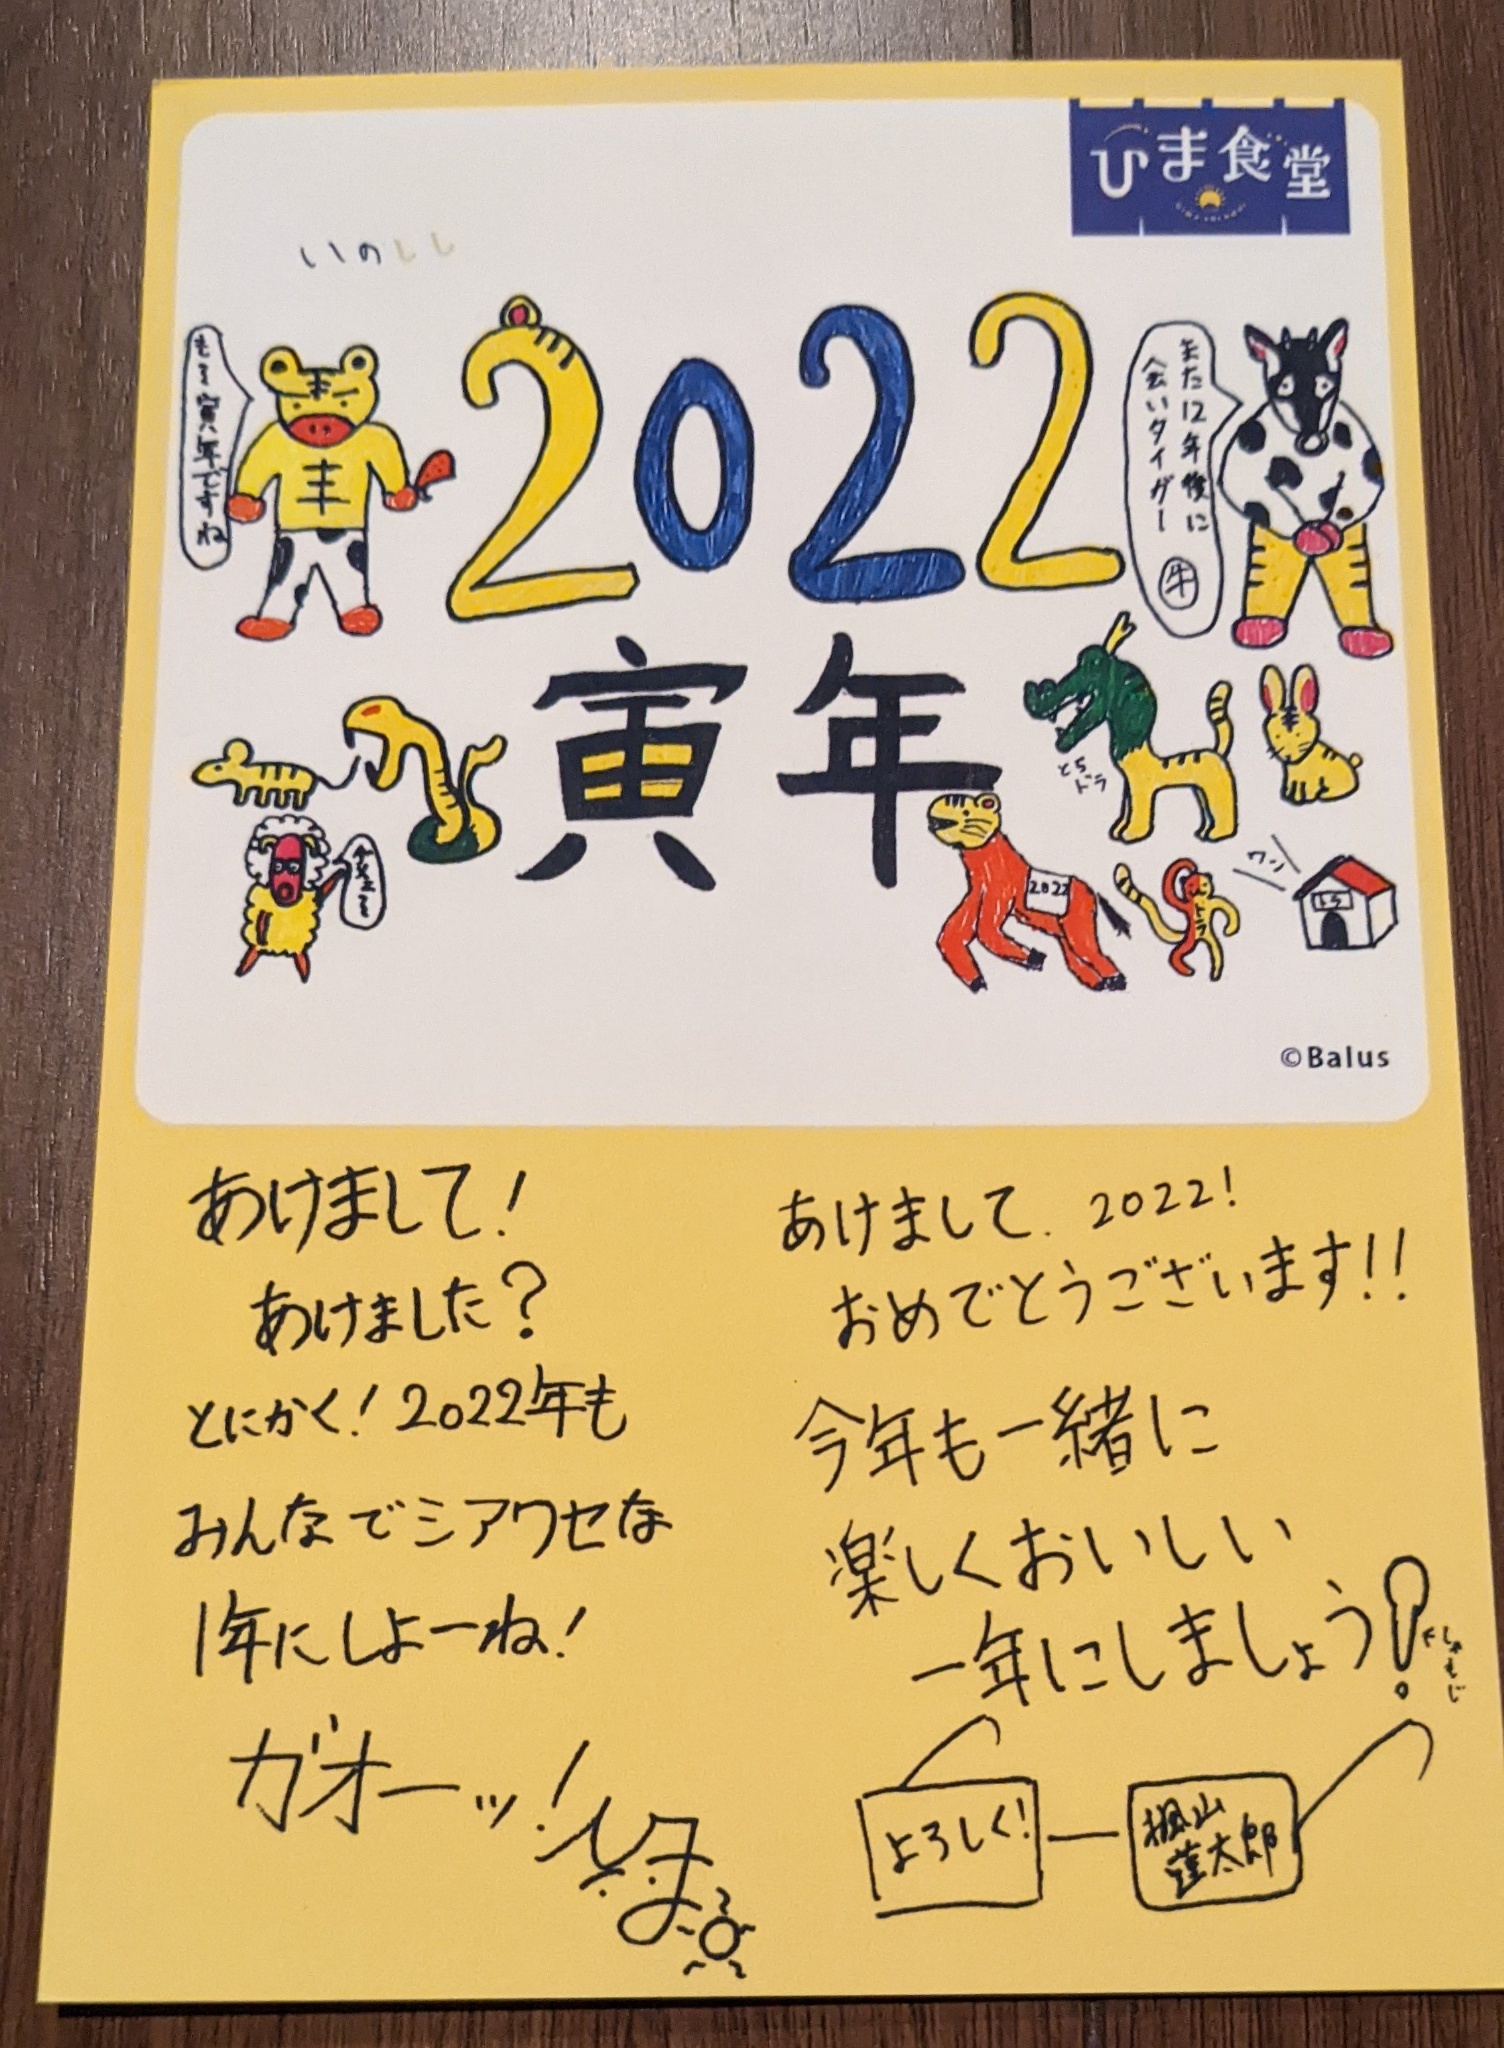 ひま食堂
いのしし
2022
もう寅年ですね
また12年後に
会いタイガー
牛
寅年
とら
ドラ
2022
トラ
ワン
トラ
©Balus
あけまして!
あけました?
とにかく!2022年も
みんなでシアワセな
1年にしよーね!
ガオーッ!
ひま
あけまして 2022!
おめでとうございます!!
今年も一緒に
楽しくおいしい
一年にしましょう!
しゃもじ
よろしく!
楓山
蓮太郎